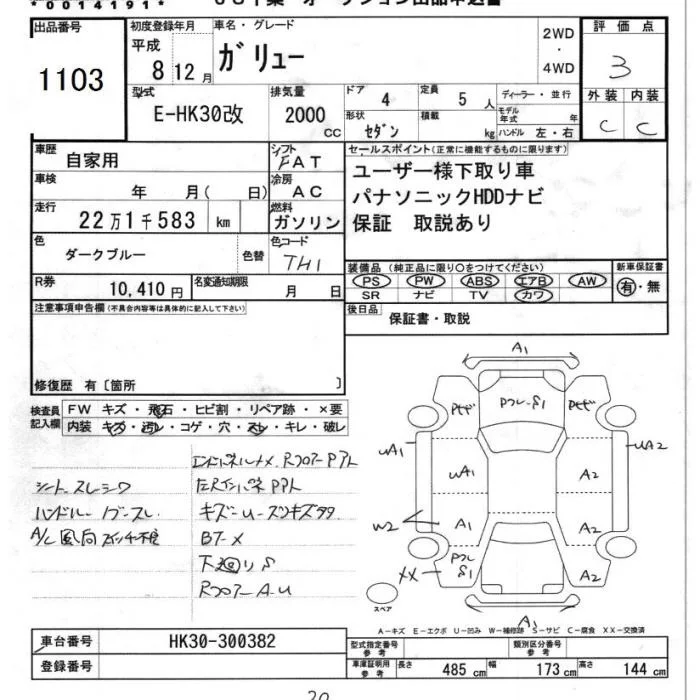 *0014191*
出品番号
1103
初度登録年月
平成
8 12 月
車名・グレード
ガリュー
2WD
・
4WD
評価点
3
外装 内装
C C
型式
E-HK30改
排気量
2000
CC
ドア
4
定員
5 人
形状
セダン
積載
kg
ディーラー・並行
モデル年式 年
ハンドル 左・右
車歴
自家用
シフト
FAT
車検
年 月( 日)
冷房
AC
走行
22万1千583 km
燃料
ガソリン
色
ダークブルー
色替
色コード
TH1
R券
10,410 円
名変通知期限
月 日
セールスポイント(正常に機能するものに限ります)
ユーザー様下取り車
パナソニックHDDナビ
保証 取説あり
装備品(純正品に限り○をつけてください)
PS PW ABS エアB AW
SR ナビ TV カワ
新車保証書
有・無
後日品
保証書・取説
注意事項申告欄(不具合内容等は具体的に記入して下さい)
修復歴 有〔箇所 〕
検査員
記入欄
FW キズ・飛石・ヒビ割・リペア跡・×要
内装 キズ・汚レ・コゲ・穴・スレ・キレ・破レ
シートスレシワ
A/C風向スイッチ不良
キズ
BT-X
下廻りS
RフロアーA-U
A1
PフレS1
UA1
UA2
UA1
A2
A1
A2
W2
XX
Pフレ
S1
A2
A1
スペア
A-キズ E-エクボ U-凹み W-補修跡 S-サビ C-腐食 XX-交換済
車台番号
HK30-300382
登録番号
型式指定番号
参考
類別区分番号
参考
車庫証明用
参考
長さ 485 cm 幅 173 cm 高さ 144 cm